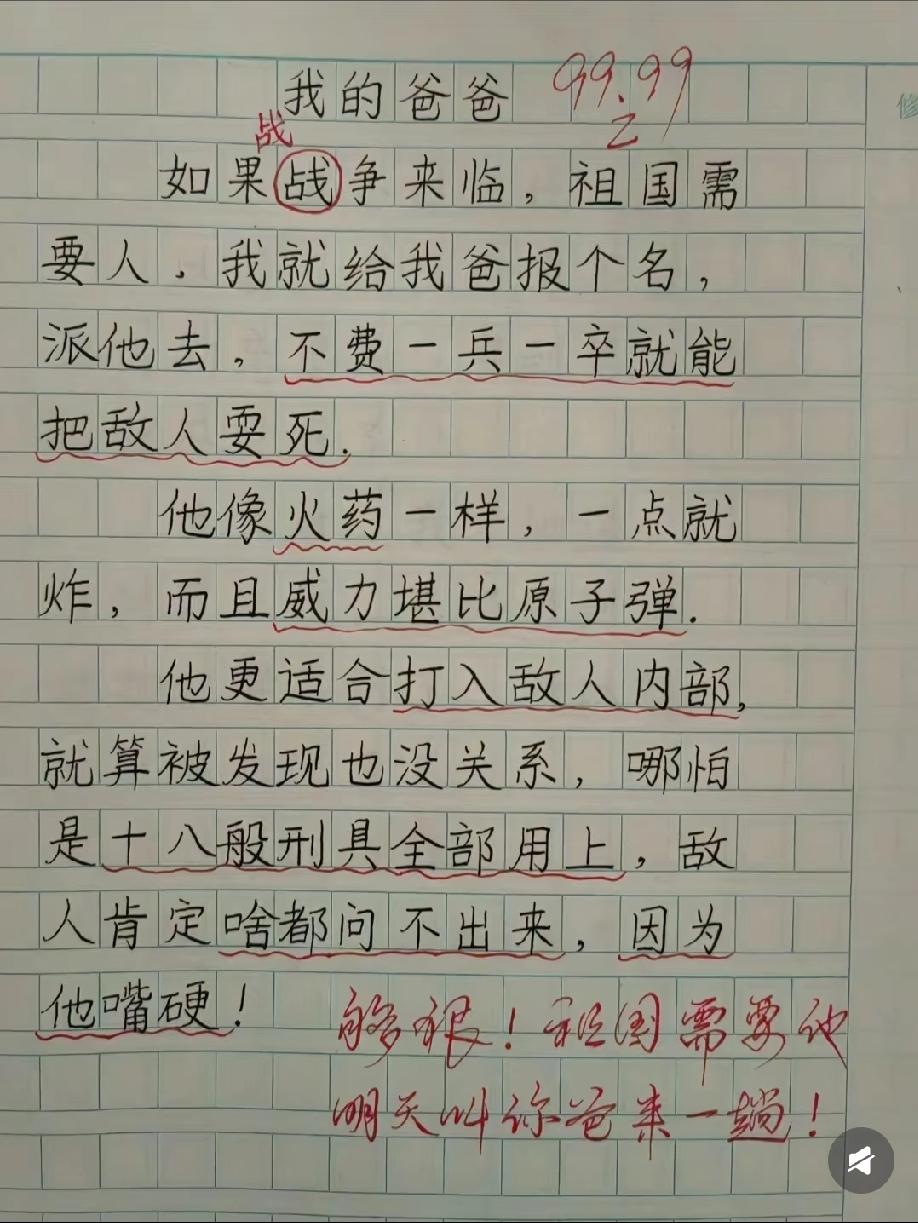 我的爸爸 99.99
战
如果战争来临，祖国需
要人．我就给我爸报个名，
派他去，不费一兵一卒就能
把敌人耍死．
他像火药一样，一点就
炸，而且威力堪比原子弹．
他更适合打入敌人内部，
就算被发现也没关系，哪怕
是十八般刑具全部用上，敌
人肯定啥都问不出来，因为
他嘴硬！
够狠！祖国需要他
明天叫你爸来一趟！